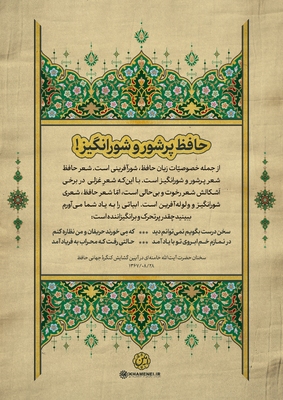 حافظ پرشور و شورانگیز!
از جمله خصوصیّات زبان حافظ، شورآفرینی است. شعر حافظ
شعر پرشور و شورانگیز است. با این‌که شعر غزلی در برخی
اَشکالش شعر رخوت و بی‌حالی است، امّا شعر حافظ، شعری
شورانگیز و ولوله‌آفرین است. ابیاتی را به یاد شما می‌آورم
ببینید چقدر پرتحرک و برانگیزاننده است:
سخن درست بگویم نمی‌توانم دید ••• که می خورند حریفان و من نظاره کنم
در نمازم خم ابروی تو با یاد آمد ••• حالتی رفت که محراب به فریاد آمد
سخنان حضرت آیت‌الله خامنه‌ای در آیین گشایش کنگره‌ٔ جهانی حافظ
۱۳۶۷/۰۸/۲۸
KHAMENEI.IR